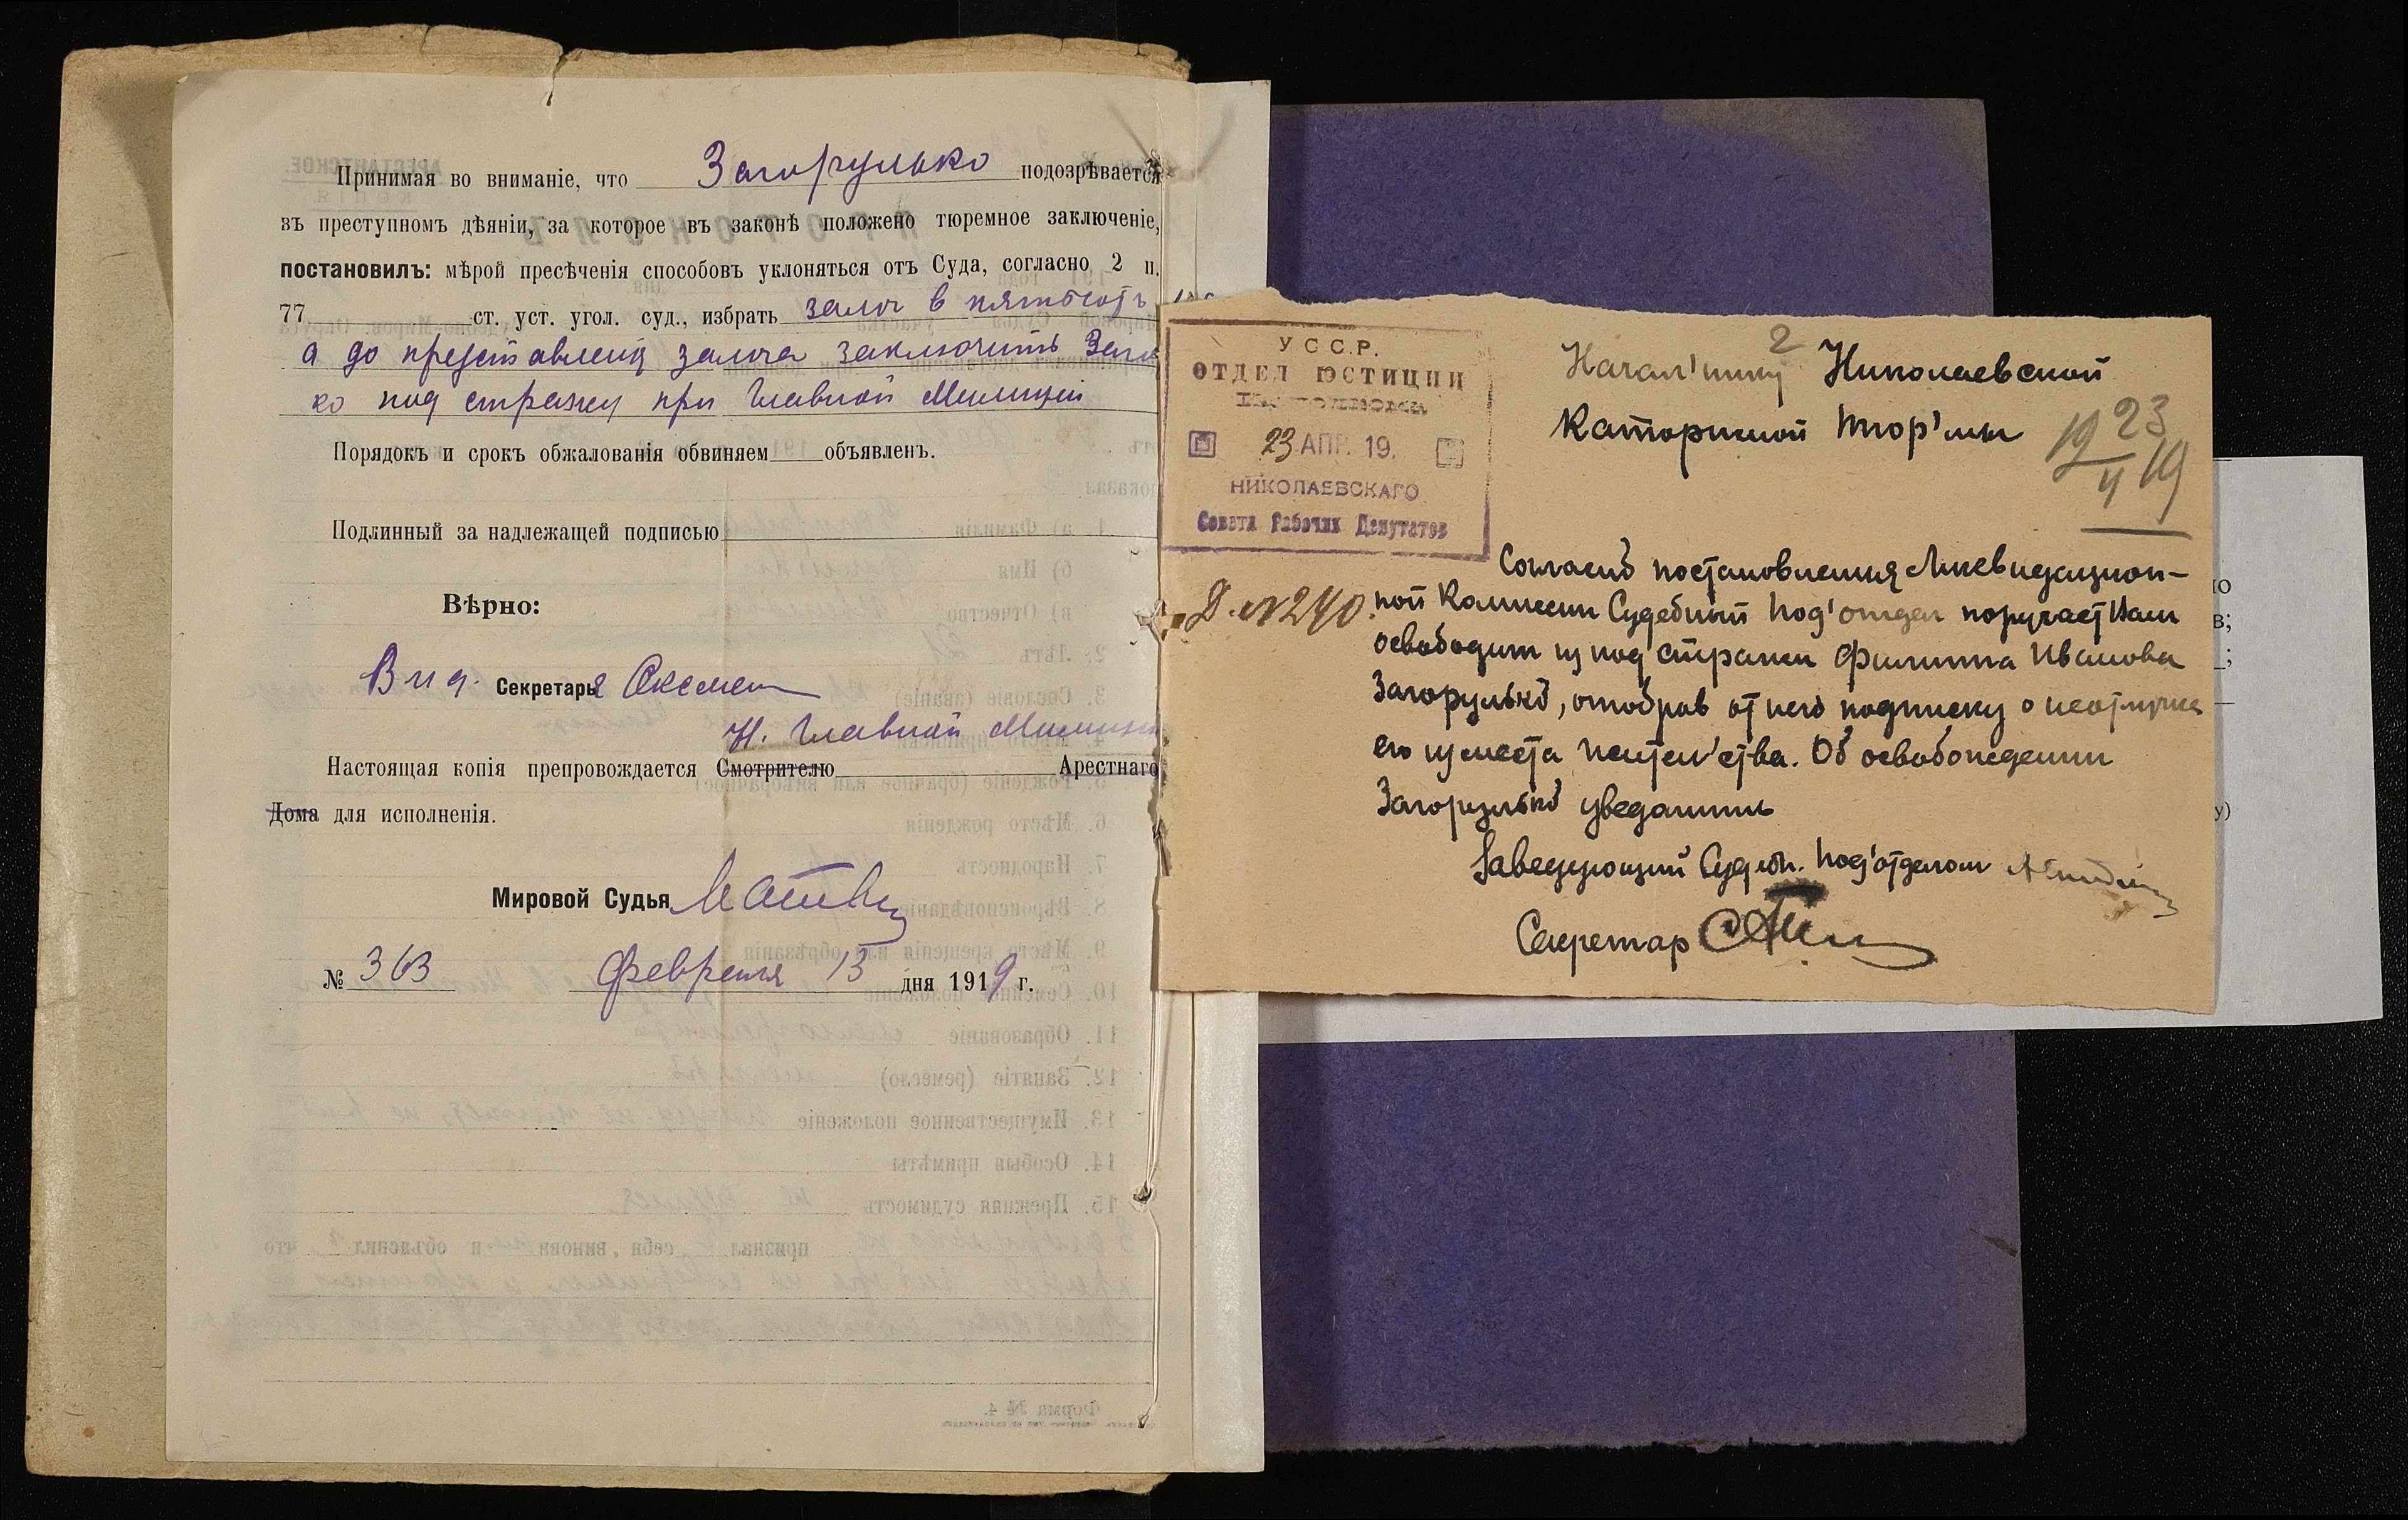 Принимая во вниманіе, что Загорулько подозрѣвается
въ преступномъ дѣяніи, за которое въ законѣ положено тюремное заключеніе,
постановилъ: мѣрой пресѣченія способовъ уклоняться отъ Суда, согласно 2 п.
77 ст. уст. угол. суд., избрать залог в пятьсотъ
а до представленія залога заключить Заго
ко под стражу при Главной Милиціи
Порядокъ и срокъ обжалованія обвиняем объявленъ.
Подлинный за надлежащей подписью
Вѣрно:
Секретаря
Н. Главной Милиции
Настоящая копія препровождается Смотрителю Арестнаго
Дома для исполненія.
Мировой Судья
№ 363 Февраля 13 дня 1919 г.
У С С.Р.
ОТДЕЛ ЮСТИЦИИ
23 АПР. 19.
НИКОЛАЕВСКАГО
Совета Рабочих Депутатов
Д. №240.
2
Начал'нику Николаевской
Каторжной тюр'мы
19 23/4 19
Согласно постановления Ликвидацион-
ной Комиссии Судебный под'отдел поручает Вам
освободит из под стражи Филиппа Иванова
Загорулько, отобрав от него подписку о неотлучке
его из места жител'ства. Об освобождении
Загорулько уведомить
Заведующий Судебн. под'отделом
Секретар